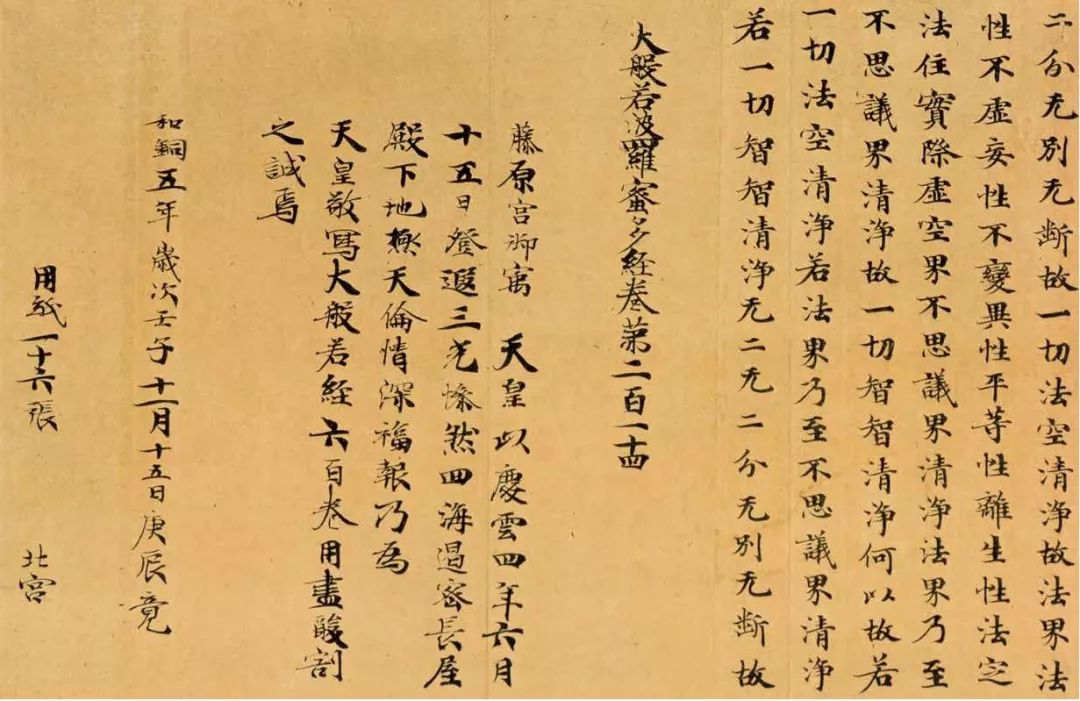 二分无別无断故一切法空清浄故法界法
性不虚妄性不變異性平等性離生性法定
法住實際虚空界不思議界清浄法界乃至
不思議界清浄故一切智智清浄何以故若
一切法空清浄若法界乃至不思議界清浄
若一切智智清浄无二无二分无別无断故
大般若波羅蜜多経巻第二百一十四
藤原宮御㝢天皇以慶雲四年六月
十五日登遐三光惨然四海遏密長屋
殿下地極天倫情深福報乃為
天皇敬寫大般若経六百巻用盡酸割
之誠焉
和銅五年歳次壬子十一月十五日庚辰竟
用紙一十六張 北宮